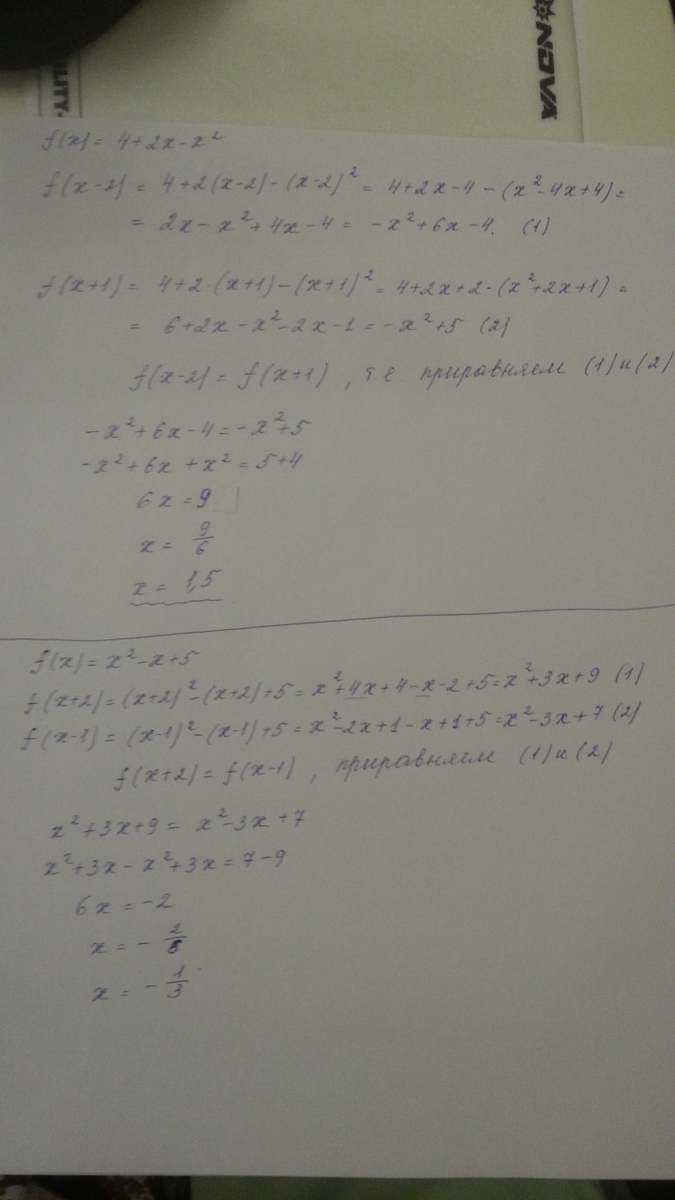 NOVA
ILITY
f(x) = 4+2x-x²
f(x-2) = 4+2(x-2)-(x-2)² = 4+2x-4-(x²-4x+4)=
= 2x-x²+4x-4 = -x²+6x-4. (1)
f(x+1) = 4+2·(x+1)-(x+1)² = 4+2x+2-(x²+2x+1) =
= 6+2x-x²-2x-1 = -x²+5 (2)
f(x-2) = f(x+1), т.е. приравняем (1) и (2)
-x²+6x-4=-x²+5
-x²+6x+x²=5+4
6x=9
x = 9/6
x = 1,5
f(x)=x²-x+5
f(x+2)=(x+2)²-(x+2)+5=x²+4x+4-x-2+5=x²+3x+9 (1)
f(x-1) = (x-1)²-(x-1)+5=x²-2x+1-x+1+5=x²-3x+7 (2)
f(x+2) = f(x-1), приравняем (1) и (2)
x²+3x+9 = x²-3x+7
x²+3x-x²+3x=7-9
6x=-2
x = -2/6
x = -1/3